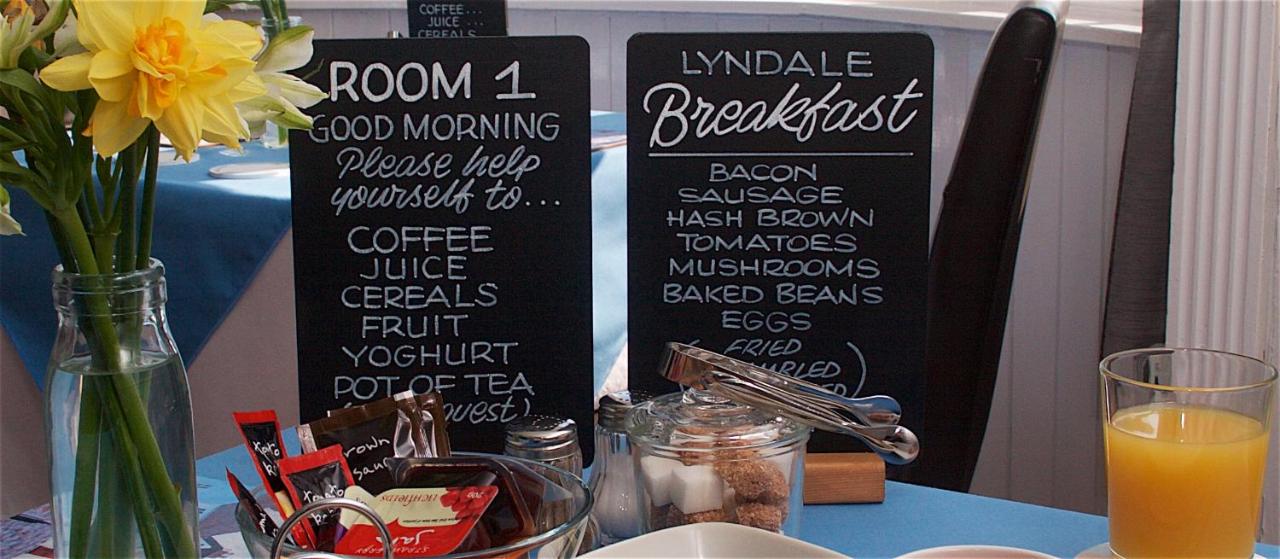 COFFEE...
JUICE ...
CEREALS
ROOM 1
GOOD MORNING
Please help
yourself to...
COFFEE
JUICE
CEREALS
FRUIT
YOGHURT
POT OF TEA
LYNDALE
Breakfast
BACON
SAUSAGE
HASH BROWN
TOMATOES
MUSHROOMS
BAKED BEANS
EGGS
( FRIED
)
brown
LICHFIELDS
STRAWBERRY
Jam